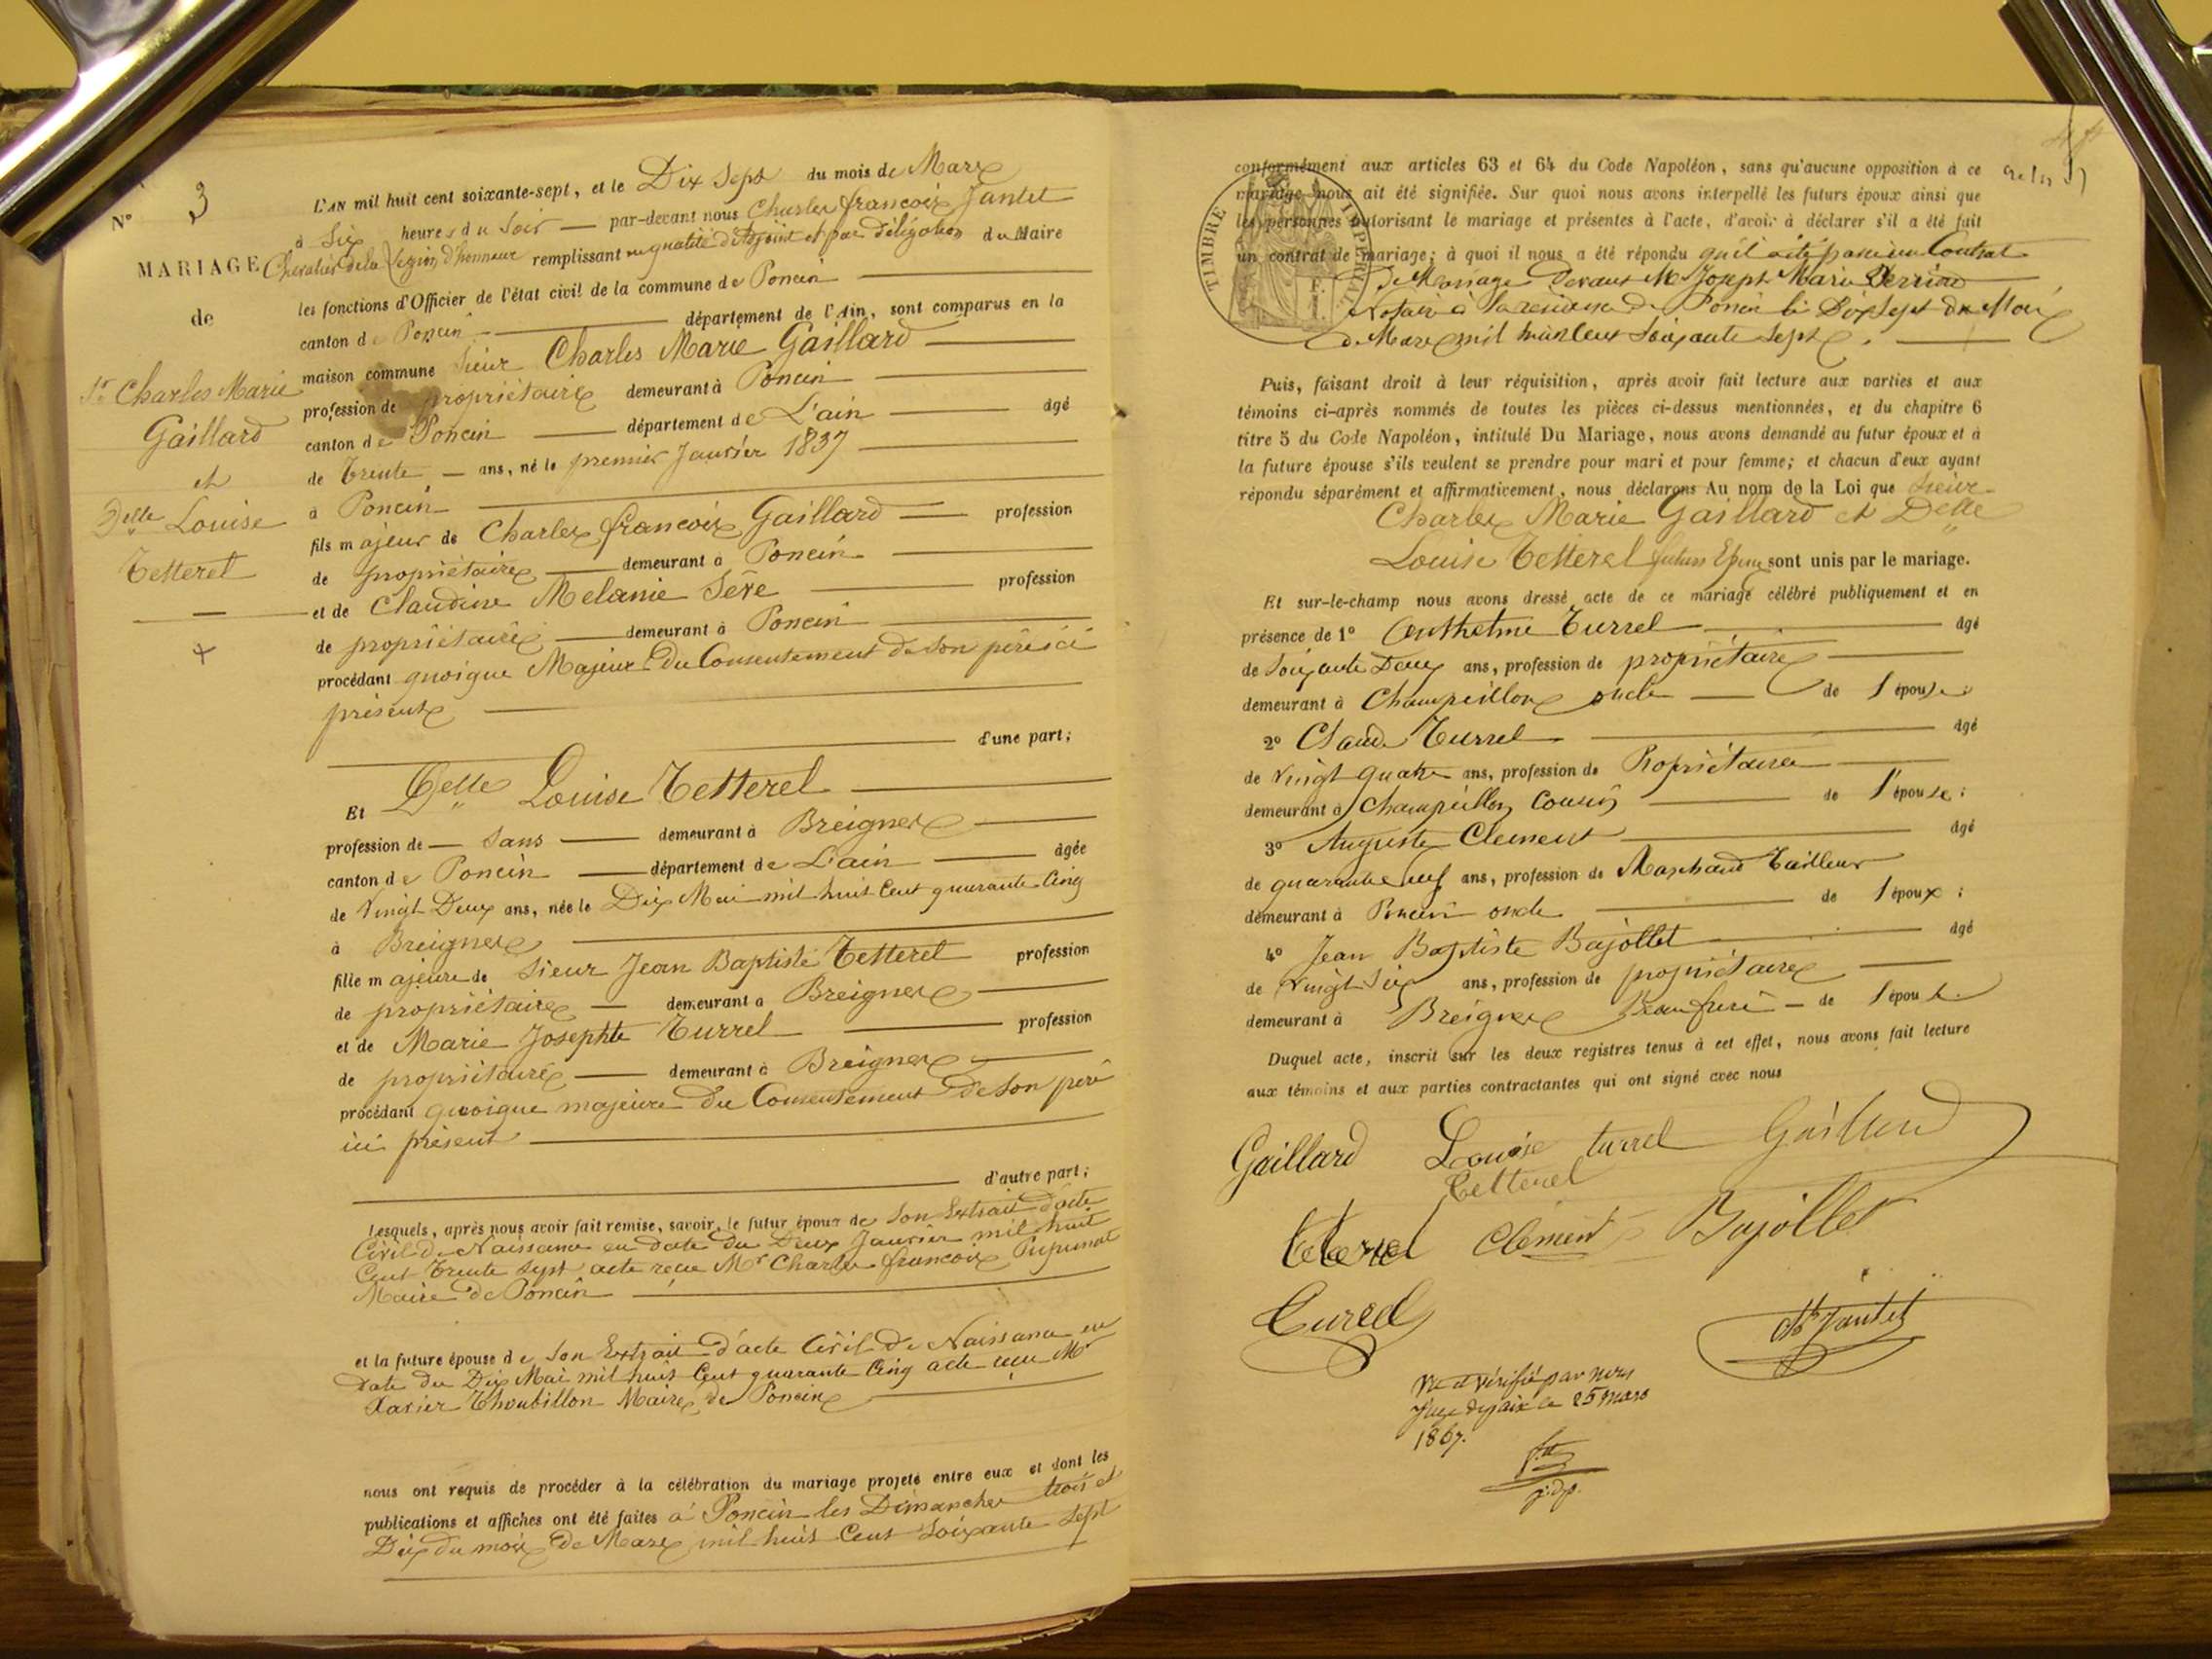 N° 3
MARIAGE
de
Sr Charles Marie
Gaillard
et
Delle Louise
Tetterel
L'AN mil huit cent soixante-sept, et le Dix Sept du mois de Mars
à Six heures du Soir par-devant nous Charles françois Jantet
Chevalier de la Légion d'honneur remplissant en qualité d'Adjoint et par Délégation du Maire
les fonctions d'Officier de l'état civil de la commune de Poncin
canton de Poncin département de l'Ain, sont comparus en la
maison commune Sieur Charles Marie Gaillard
profession de propriétaire demeurant à Poncin
canton de Poncin département de L'ain âgé
de trente ans, né le premier Janvier 1837
à Poncin
fils majeur de Charles françois Gaillard profession
de propriétaire demeurant à Poncin
et de Claudine Melanie Sève profession
de propriétaire demeurant à Poncin
procédant quoique Majeur Du Consentement de son père ici
présent
d'une part;
Et Delle Louise Tetterel
profession de Sans demeurant à Breignes
canton de Poncin département de L'ain âgée
de Vingt Deux ans, née le Dix Mai mil huit Cent quarante Cinq
à Breignes
fille majeure de Sieur Jean Baptiste Tetterel profession
de propriétaire demeurant à Breignes
et de Marie Josephte Turrel profession
de propriétaire demeurant à Breignes
procédant quoique majeure du Consentement De Son père
ici présent
d'autre part;
Lesquels, après nous avoir fait remise, savoir, le futur époux de Son Extrait d'acte
Civil De Naissance en date du Deux Janvier mil huit
Cent Trente Sept acte recu Mr Charles françois
Maire De Poncin
et la future épouse de Son Extrait d'acte Civil De Naissance en
date du Dix Mai mil huit Cent quarante Cinq acte recu Mr
Xavier Thoubillon Maire de Poncin
nous ont requis de procéder à la célébration du mariage projeté entre eux et dont les
publications et affiches ont été faites à Poncin les Dimanches trois et
Dix du mois De Mars mil huit Cent Soixante Sept
TIMBRE IMPERIAL
conformément aux articles 63 et 64 du Code Napoléon, sans qu'aucune opposition à ce
mariage nous ait été signifiée. Sur quoi nous avons interpellé les futurs époux ainsi que
les personnes autorisant le mariage et présentes à l'acte, d'avoir à déclarer s'il a été fait
un contrat de mariage; à quoi il nous a été répondu qu'il a été passé un Contrat
De Mariage Devant Me Joseph Marie
Notaire à la résidence De Poncin le Dix Sept du Mois
De Mars mil huit Cent Soixante Sept.
Puis, faisant droit à leur réquisition, après avoir fait lecture aux parties et aux
témoins ci-après nommés de toutes les pièces ci-dessus mentionnées, et du chapitre 6
titre 5 du Code Napoléon, intitulé Du Mariage, nous avons demandé au futur époux et à
la future épouse s'ils veulent se prendre pour mari et pour femme; et chacun d'eux ayant
répondu séparément et affirmativement, nous déclarons Au nom de la Loi que Sieur
Charles Marie Gaillard et Delle
Louise Tetterel futurs Epoux sont unis par le mariage.
Et sur-le-champ nous avons dressé acte de ce mariage célébré publiquement et en
présence de 1° Anthelme Turrel âgé
de Soixante Deux ans, profession de propriétaire
demeurant à Champeillon oncle de l'épouse;
2° Claude Turrel âgé
de Vingt quatre ans, profession de Propriétaire
demeurant à Champeillon Cousin de l'épouse;
3° Auguste Clement âgé
de quarante neuf ans, profession de Marchand Tailleur
demeurant à Poncin oncle de l'époux;
4° Jean Baptiste Bajollet âgé
de Vingt Six ans, profession de propriétaire
demeurant à Breignes Beau frère de l'épouse.
Duquel acte, inscrit sur les deux registres tenus à cet effet, nous avons fait lecture
aux témoins et aux parties contractantes qui ont signé avec nous
Gaillard Louise turrel Gaillard
Tetterel
Teterel Clément Bajollet
Turrel Ch Jantet
Vu et vérifié par nous
Juge de paix le 25 mars
1867.
j. d. p.